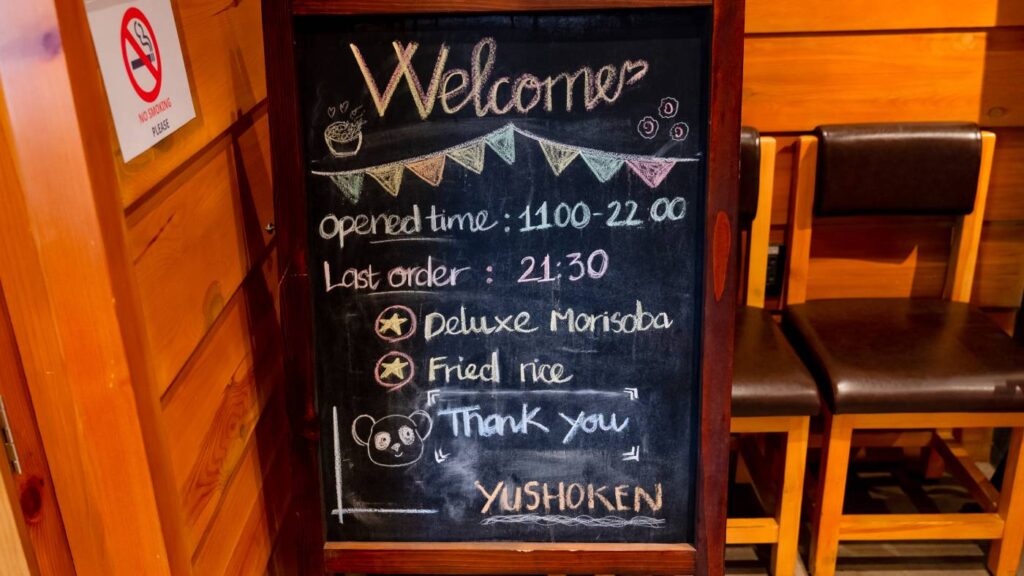 NO SMOKING
PLEASE
Welcome
opened time : 11 00 - 22 00
Last order : 21:30
Deluxe Morisoba
Fried rice
Thank you
YUSHOKEN